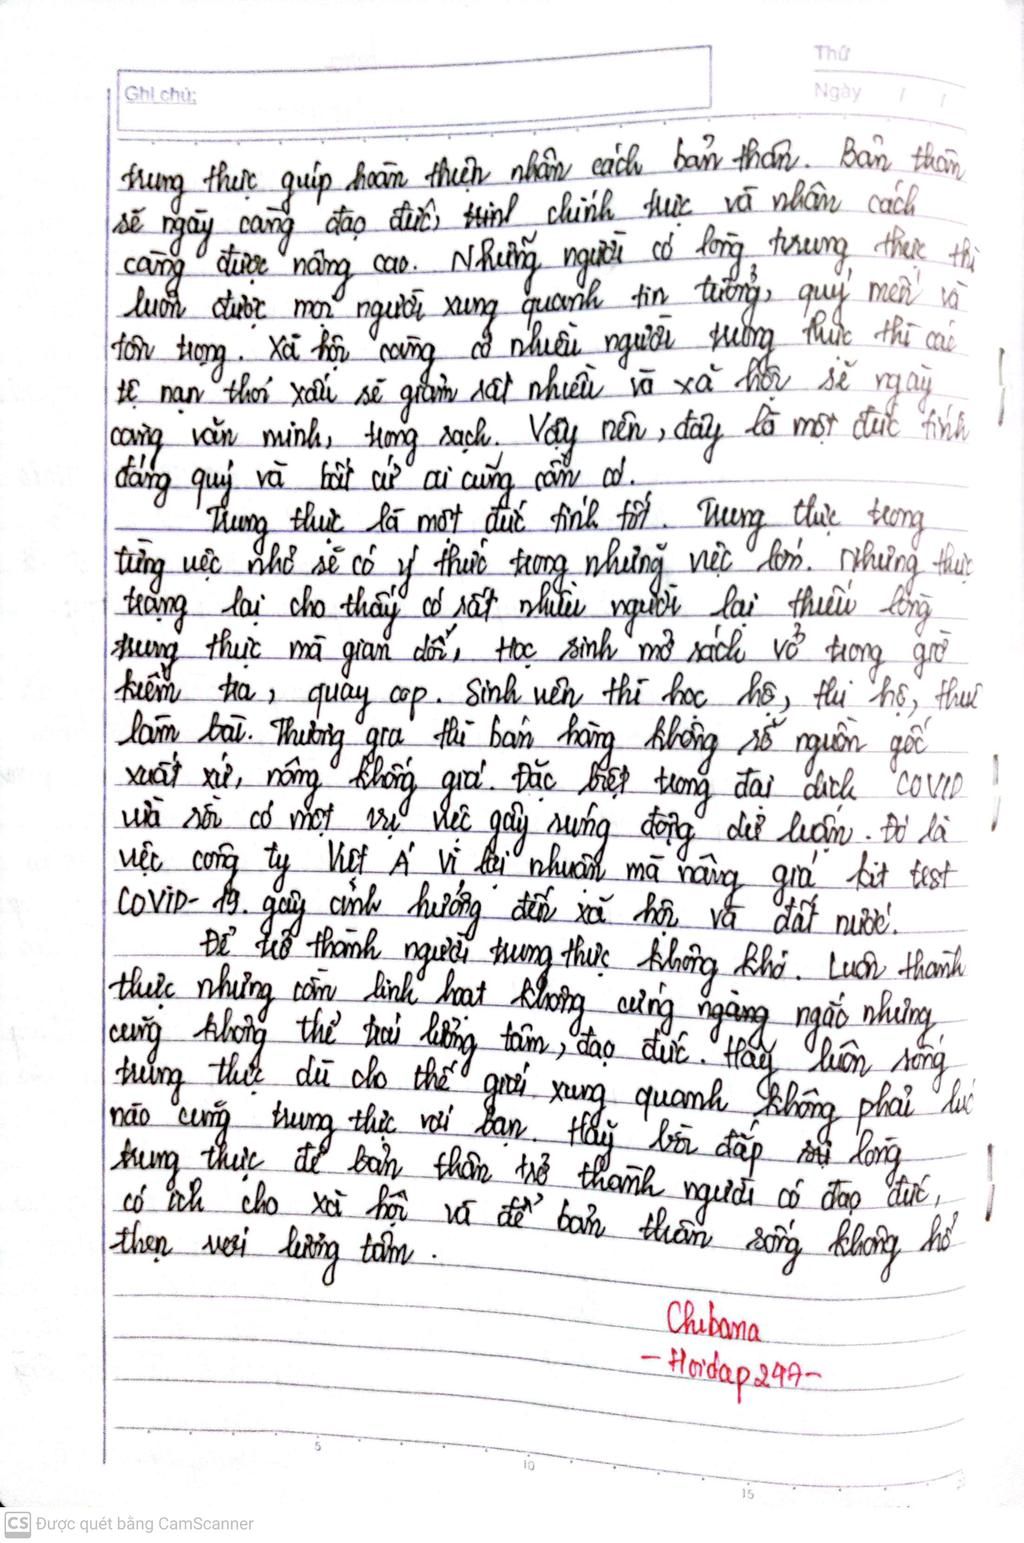 Thứ
Ghi chú:
Ngày / /
trung thực giúp hoàn thiện nhân cách bản thân. Bản thân
sẽ ngày càng đạo đức, chính trực và nhân cách
càng được nâng cao. Những người có lòng trung thực thì
luôn được mọi người xung quanh tin tưởng, quý mến và
tôn trọng. Xã hội càng có nhiều người trung thực thì các
tệ nạn thói xấu sẽ giảm rất nhiều và xã hội sẽ ngày
càng văn minh, trong sạch. Vậy nên, đây là một đức tính
đáng quý và bất cứ ai cũng cần có.
Trung thực là một đức tính tốt. Trung thực trong
từng việc nhỏ sẽ có ý thức trong những việc lớn. Nhưng thực
trạng lại cho thấy có rất nhiều người lại thiếu lòng
trung thực mà gian dối, Học sinh mở sách vở trong giờ
kiểm tra, quay cop. Sinh viên thì học hộ, thi hộ, thuê
làm bài. Thương gia thì bán hàng không rõ nguồn gốc
xuất xứ, nâng khống giá. Đặc biệt trong đại dịch COVID
vừa rồi có một vụ việc gây rúng động dư luận. Đó là
việc công ty Việt Á vì lợi nhuận mà nâng giá kit test
COVID-19. gây ảnh hưởng đến xã hội và đất nước.
Để trở thành người trung thực không khó. Luôn thành
thực nhưng cần linh hoạt không cứng ngắc nhưng
cũng không thể trái lương tâm, đạo đức. Hãy luôn sống
trung thực dù cho thế giới xung quanh không phải lúc
nào cũng trung thực với bạn. Hãy bồi đắp lòng
trung thực để bản thân trở thành người có đạo đức,
có ích cho xã hội và để bản thân sống không hổ
thẹn với lương tâm.
Chibana
- Hoidap247 -
5
10
15
CS Được quét bằng CamScanner